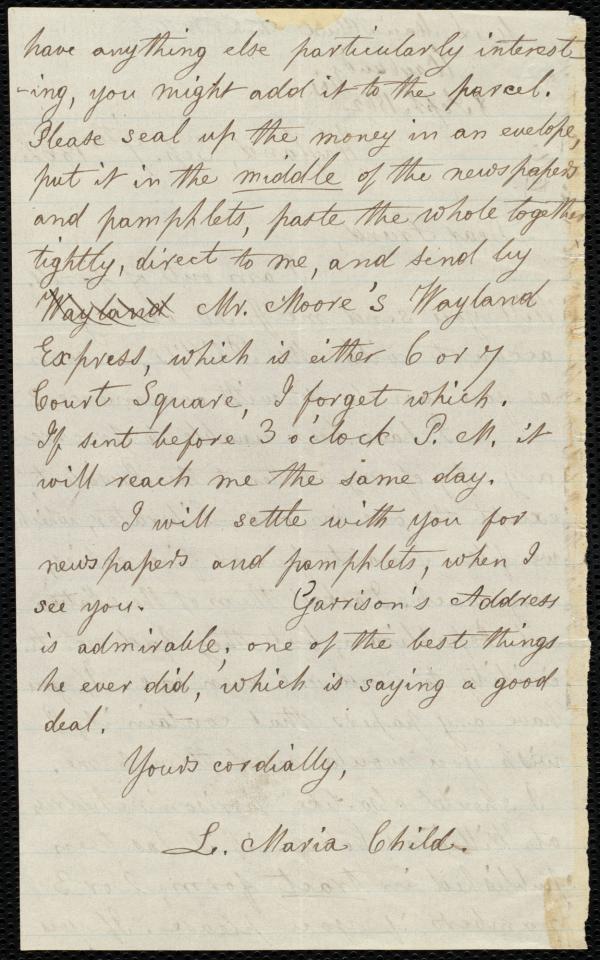 have anything else particularly interest
-ing, you might add it to the parcel.
Please seal up the money in an evelope,
put it in the middle of the newspapers
and pamphlets, paste the whole together
tightly, direct to me, and send by
Wayland Mr. Moore's Wayland
Express, which is either 6 or 7
Court Square, I forget which.
If sent before 3 o'clock P. M. it
will reach me the same day.
I will settle with you for
newspapers and pamphlets, when I
see you. Garrison's Address
is admirable; one of the best things
he ever did, which is saying a good
deal.
Yours cordially,
L. Maria Child.